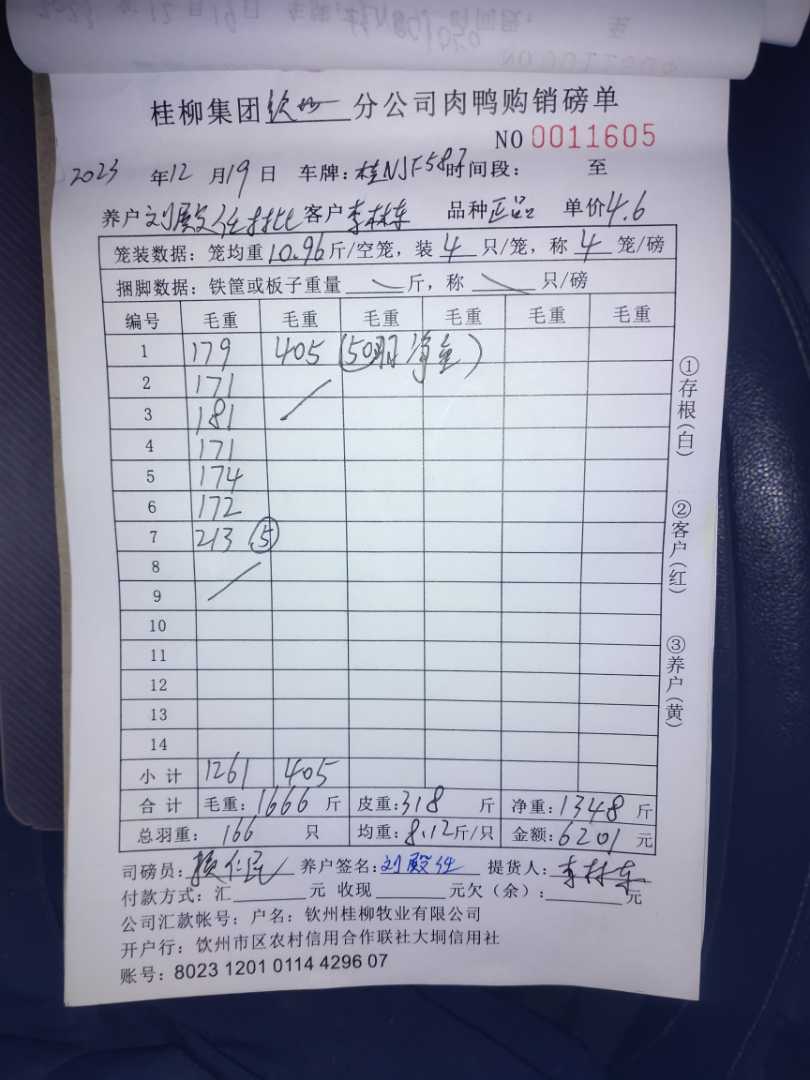 桂柳集团钦州分公司肉鸭购销磅单
NO 0011605
2023年12月19日 车牌：桂NJF587 时间段： 至
养户刘殿任 客户李林东 品种正品 单价4.6
笼装数据：笼均重10.96斤/空笼，装4只/笼，称4笼/磅
捆脚数据：铁筐或板子重量＼斤，称＼只/磅
编号 毛重 毛重 毛重 毛重 毛重 毛重
1 179 405 (50羽净重)
2 171
3 181
4 171
5 174
6 172
7 213 ⑤
8
9
10
11
12
13
14
小计 1261 405
合计 毛重：1666斤 皮重：318斤 净重：1348斤
总羽重：166只 均重：8.12斤/只 金额：6201元
司磅员：颜仁民 养户签名：刘殿任 提货人：李林东
付款方式：汇 元 收现 元欠（余）： 元
公司汇款帐号：户名：钦州桂柳牧业有限公司
开户行：饮州市区农村信用合作联社大垌信用社
账号：8023 1201 0114 4296 07
①存根(白)
②客户(红)
③养户(黄)